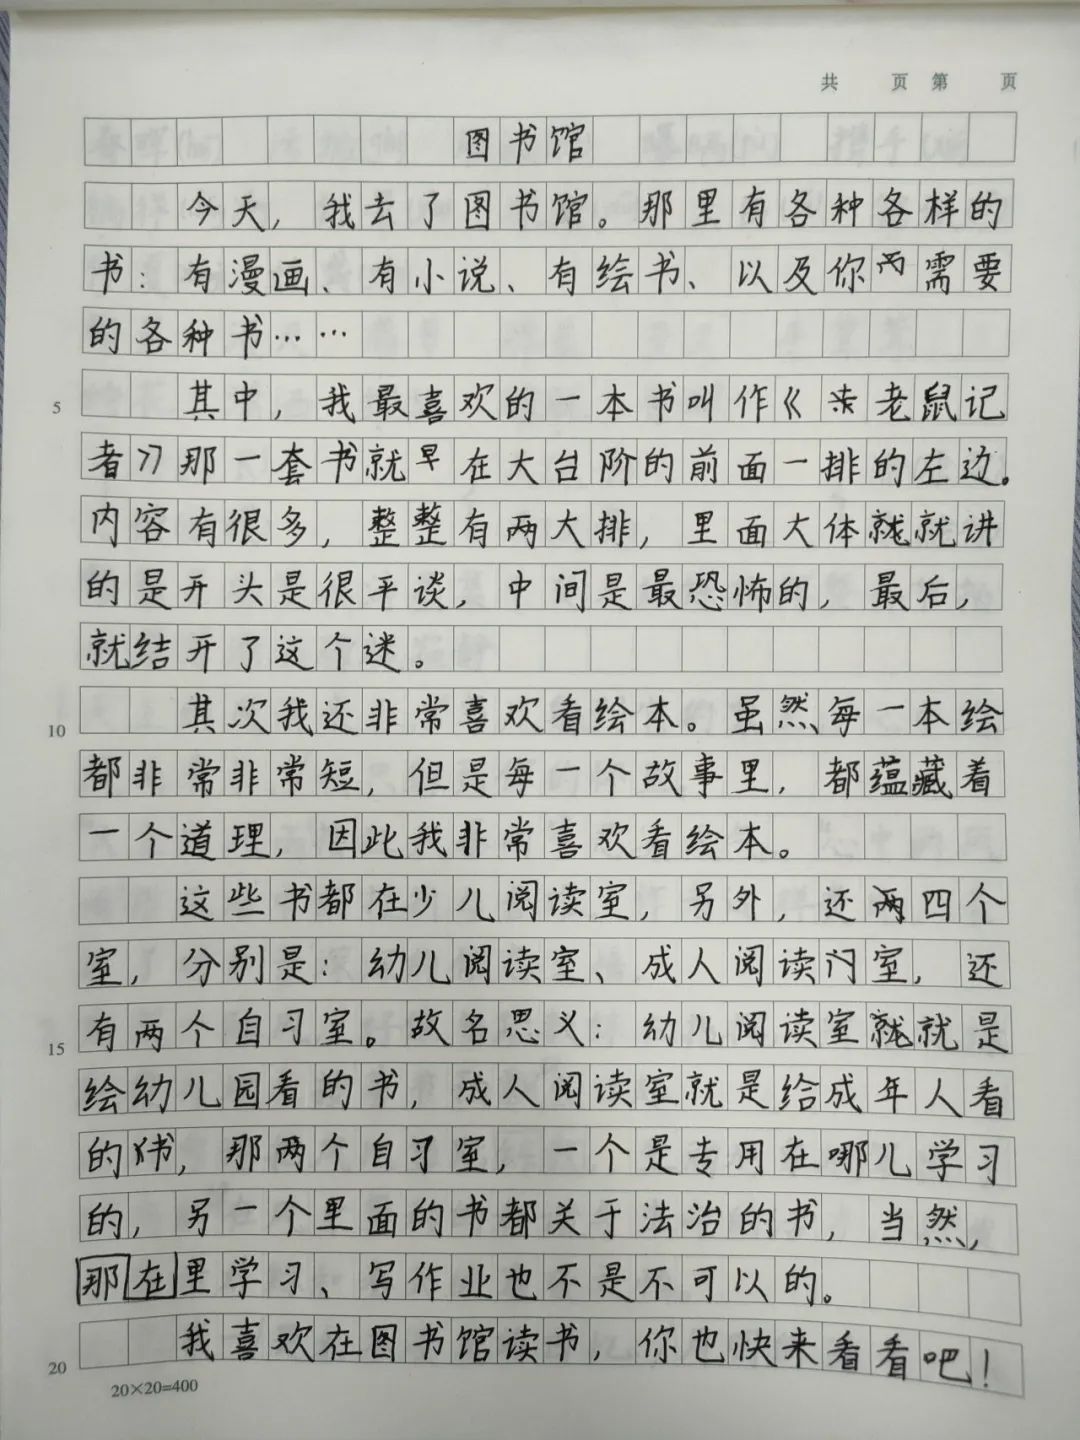 共 页 第 页
图书馆
今天，我去了图书馆。那里有各种各样的
书：有漫画、有小说、有绘书、以及你需要
的各种书……
5 其中，我最喜欢的一本书叫作《老鼠记
者》那一套书就在大台阶的前面一排的左边。
内容有很多，整整有两大排，里面大体就就讲
的是开头是很平谈，中间是最恐怖的，最后，
就结开了这个迷。
10 其次我还非常喜欢看绘本。虽然每一本绘
都非常非常短，但是每一个故事里，都蕴藏着
一个道理，因此我非常喜欢看绘本。
这些书都在少儿阅读室，另外，还两四个
室，分别是：幼儿阅读室、成人阅读室，还
15 有两个自习室。故名思义：幼儿阅读室就就是
绘幼儿园看的书，成人阅读室就是给成年人看
的书，那两个自习室，一个是专用在哪儿学习
的，另一个里面的书都关于法治的书，当然，
那在里学习、写作业也不是不可以的。
20 我喜欢在图书馆读书，你也快来看看吧！
20×20=400